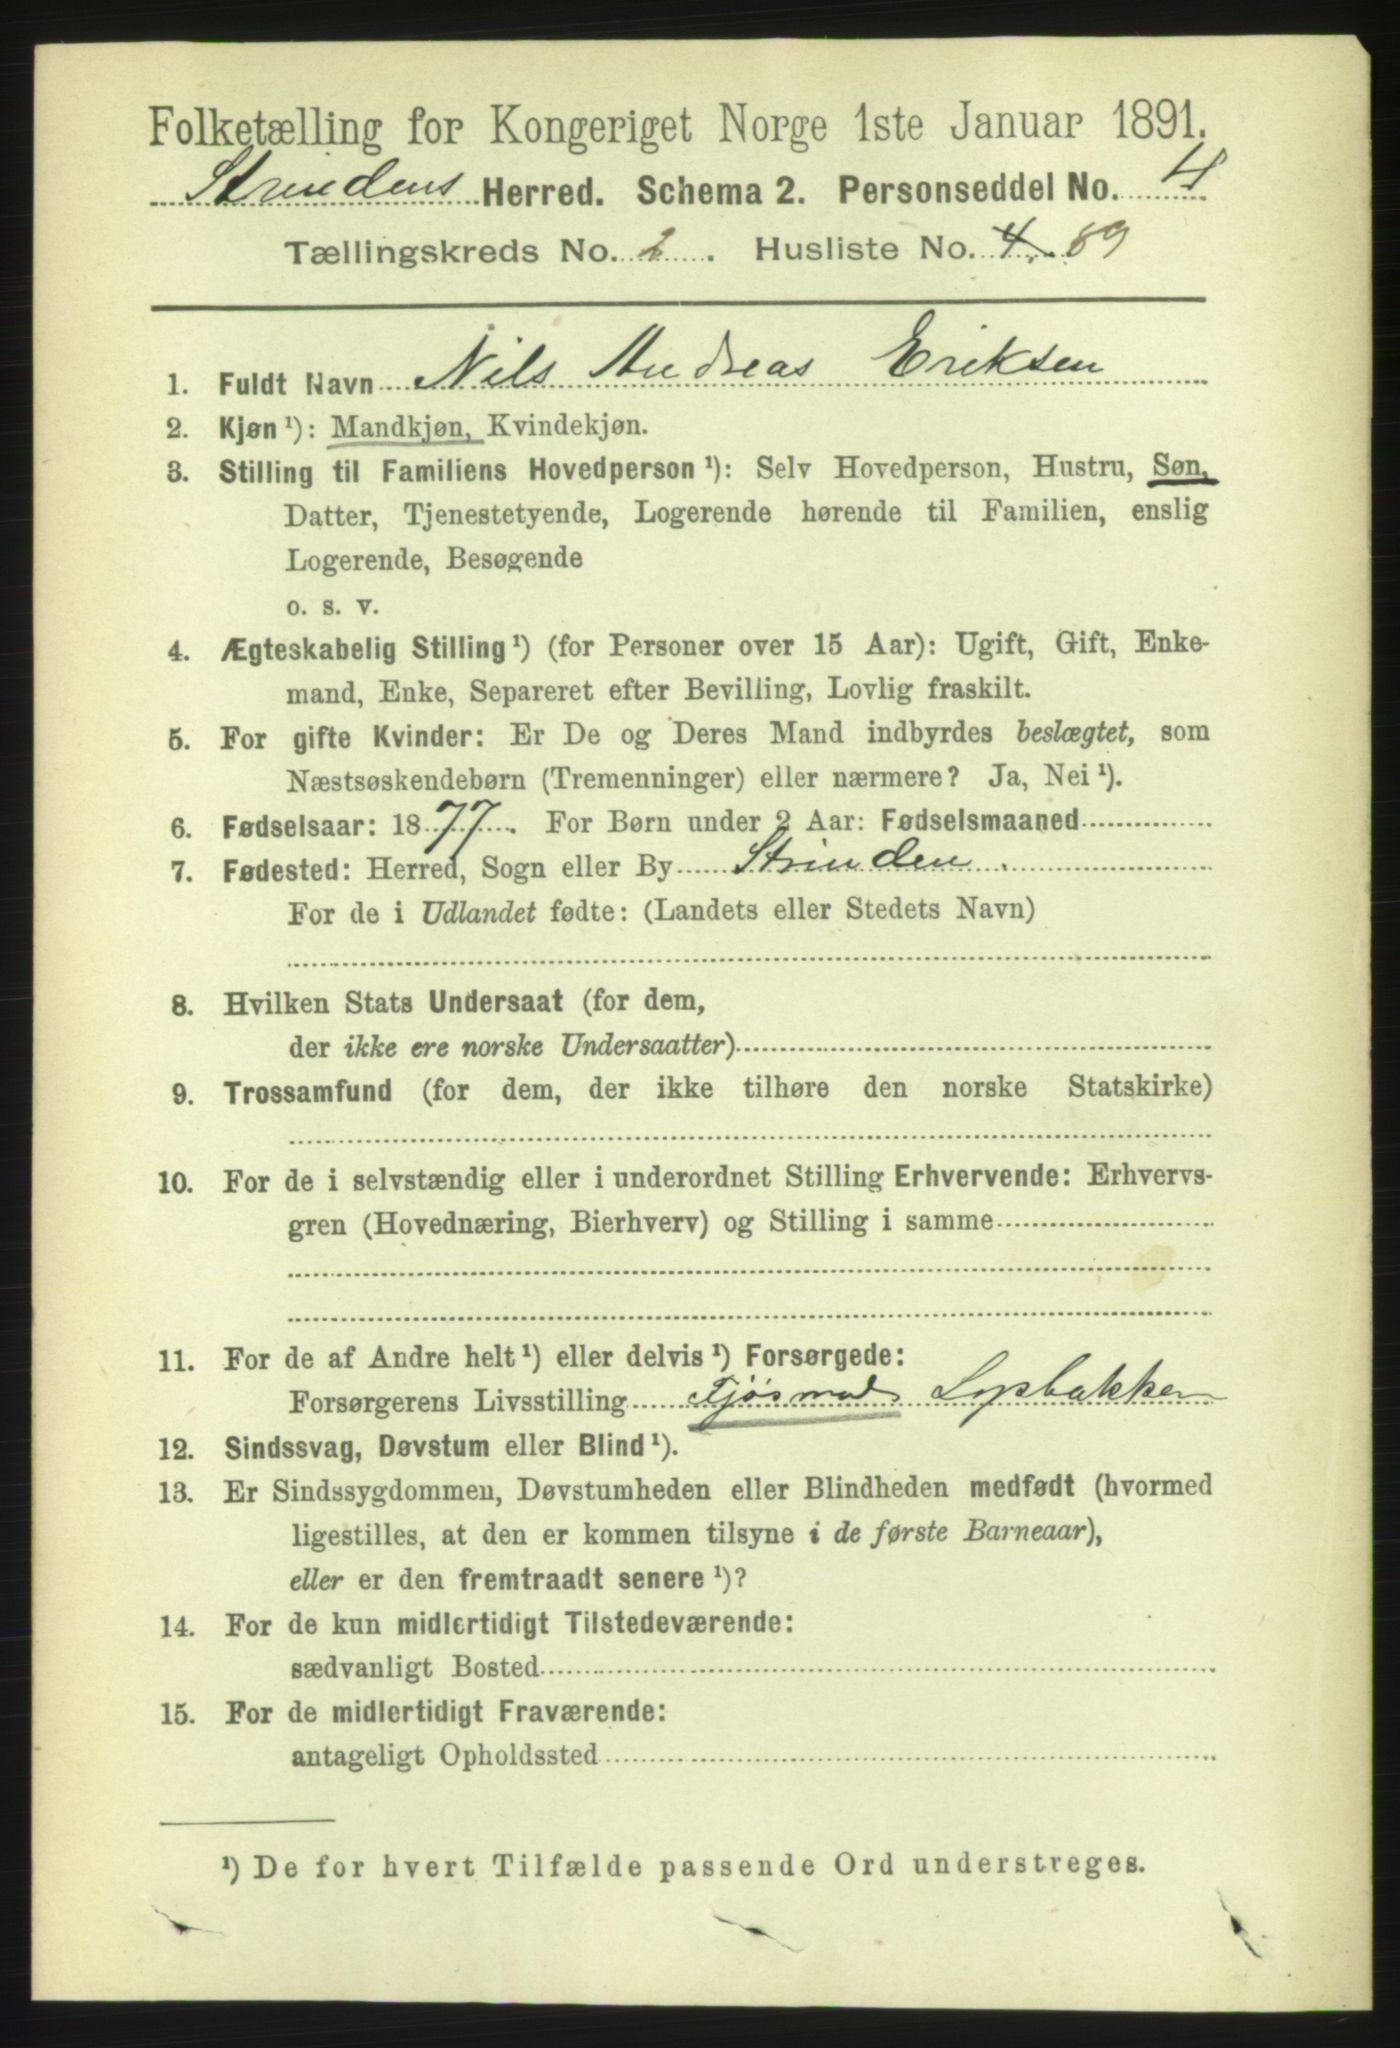 Folketælling for Kongeriget Norge 1ste Januar 1891.
Strindens Herred. Schema 2. Personseddel No. 4
Tællingskreds No. 2. Husliste No. 4. 89
1. Fuldt Navn Nils Andreas Eriksen
2. Kjøn ¹): Mandkjøn, Kvindekjøn.
3. Stilling til Familiens Hovedperson ¹): Selv Hovedperson, Hustru, Søn,
Datter, Tjenestetyende, Logerende hørende til Familien, enslig
Logerende, Besøgende
o. s. v.
4. Ægteskabelig Stilling ¹) (for Personer over 15 Aar): Ugift, Gift, Enke-
mand, Enke, Separeret efter Bevilling, Lovlig fraskilt.
5. For gifte Kvinder: Er De og Deres Mand indbyrdes beslægtet, som
Næstsøskendebørn (Tremenninger) eller nærmere? Ja, Nei ¹).
6. Fødselsaar: 1877. For Børn under 2 Aar: Fødselsmaaned
7. Fødested: Herred, Sogn eller By Strinden.
For de i Udlandet fødte: (Landets eller Stedets Navn)
8. Hvilken Stats Undersaat (for dem,
der ikke ere norske Undersaatter)
9. Trossamfund (for dem, der ikke tilhøre den norske Statskirke)
10. For de i selvstændig eller i underordnet Stilling Erhvervende: Erhvervs-
gren (Hovednæring, Bierhverv) og Stilling i samme
11. For de af Andre helt ¹) eller delvis ¹) Forsørgede:
Forsørgerens Livsstilling
12. Sindssvag, Døvstum eller Blind ¹).
13. Er Sindssygdommen, Døvstumheden eller Blindheden medfødt (hvormed
ligestilles, at den er kommen tilsyne i de første Barneaar),
eller er den fremtraadt senere ¹)?
14. For de kun midlertidigt Tilstedeværende:
sædvanligt Bosted
15. For de midlertidigt Fraværende:
antageligt Opholdssted
¹) De for hvert Tilfælde passende Ord understreges.